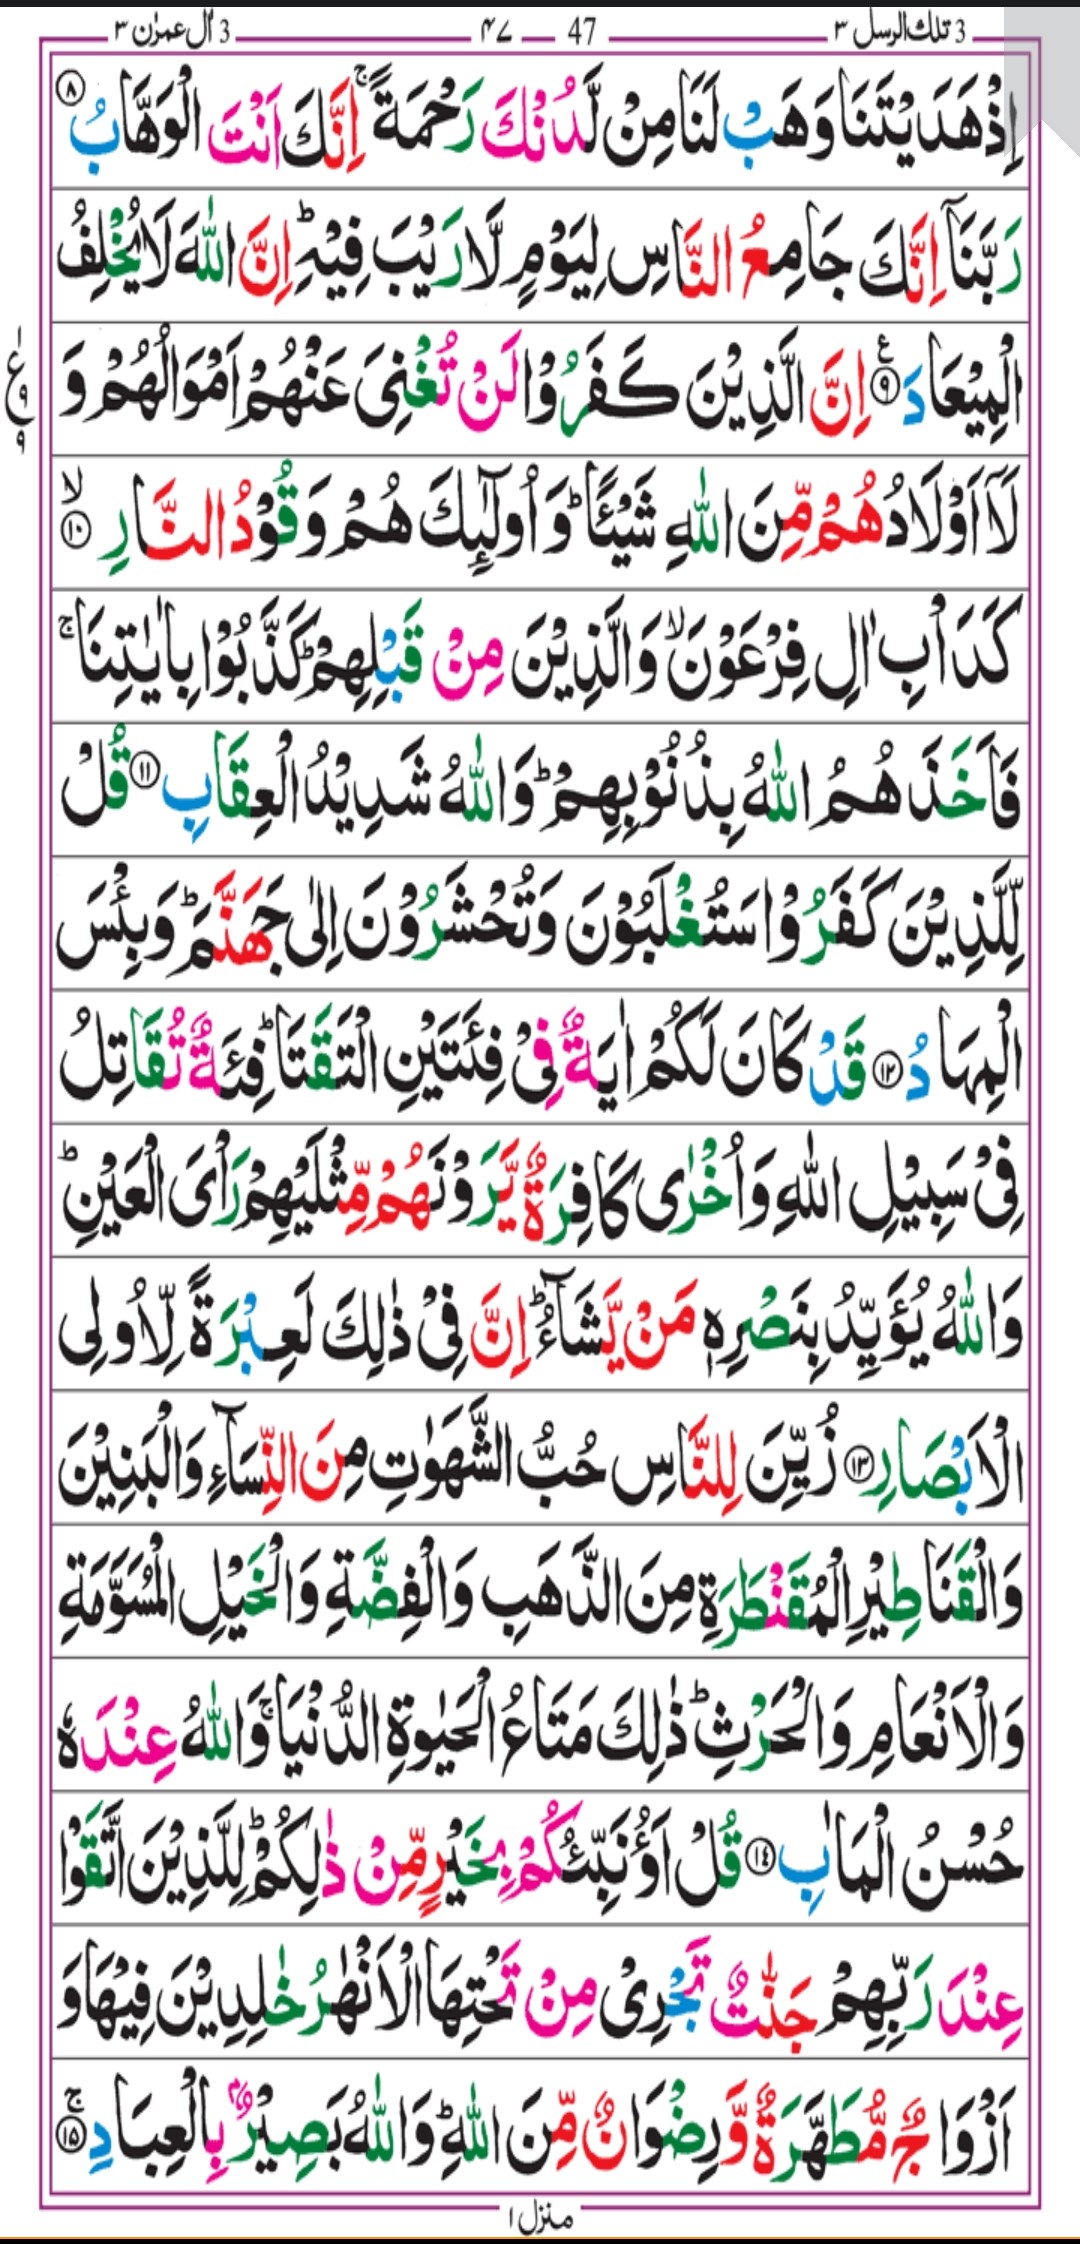 3 تلك الرسل ٣ 47 ٤٧ 3 اٰل عمرٰن ٣
اِذْ هَدَيْتَنَا وَهَبْ لَنَا مِنْ لَّدُنْكَ رَحْمَةً ۚ اِنَّكَ اَنْتَ الْوَهَّابُ ۸
رَبَّنَاۤ اِنَّكَ جَامِعُ النَّاسِ لِيَوْمٍ لَّا رَيْبَ فِيْهِ ؕ اِنَّ اللّٰهَ لَا يُخْلِفُ
الْمِيْعَادَ ۹ ع اِنَّ الَّذِيْنَ كَفَرُوْا لَنْ تُغْنِىَ عَنْهُمْ اَمْوَالُهُمْ وَ
ع ۹ ۹
لَاۤ اَوْلَادُهُمْ مِّنَ اللّٰهِ شَيْـًٔا ؕ وَ اُولٰٓئِكَ هُمْ وَقُوْدُ النَّارِ ۱۰ ۙ
كَدَاْبِ اٰلِ فِرْعَوْنَ ۙ وَالَّذِيْنَ مِنْ قَبْلِهِمْ ؕ كَذَّبُوْا بِاٰيٰتِنَا ۚ
فَاَخَذَهُمُ اللّٰهُ بِذُنُوْبِهِمْ ؕ وَاللّٰهُ شَدِيْدُ الْعِقَابِ ۱۱ قُلْ
لِّلَّذِيْنَ كَفَرُوْا سَتُغْلَبُوْنَ وَتُحْشَرُوْنَ اِلٰى جَهَنَّمَ ؕ وَبِئْسَ
الْمِهَادُ ۱۲ قَدْ كَانَ لَكُمْ اٰيَةٌ فِىْ فِئَتَيْنِ الْتَقَتَا ؕ فِئَةٌ تُقَاتِلُ
فِىْ سَبِيْلِ اللّٰهِ وَاُخْرٰى كَافِرَةٌ يَّرَوْنَهُمْ مِّثْلَيْهِمْ رَاْىَ الْعَيْنِ ؕ
وَاللّٰهُ يُؤَيِّدُ بِنَصْرِهٖ مَنْ يَّشَآءُ ؕ اِنَّ فِىْ ذٰلِكَ لَعِبْرَةً لِّاُولِى
الْاَبْصَارِ ۱۳ زُيِّنَ لِلنَّاسِ حُبُّ الشَّهَوٰتِ مِنَ النِّسَآءِ وَالْبَنِيْنَ
وَالْقَنَاطِيْرِ الْمُقَنْطَرَةِ مِنَ الذَّهَبِ وَالْفِضَّةِ وَالْخَيْلِ الْمُسَوَّمَةِ
وَالْاَنْعَامِ وَالْحَرْثِ ؕ ذٰلِكَ مَتَاعُ الْحَيٰوةِ الدُّنْيَا ۚ وَاللّٰهُ عِنْدَهٗ
حُسْنُ الْمَاٰبِ ۱٤ قُلْ اَؤُنَبِّئُكُمْ بِخَيْرٍ مِّنْ ذٰلِكُمْ ؕ لِلَّذِيْنَ اتَّقَوْا
عِنْدَ رَبِّهِمْ جَنّٰتٌ تَجْرِىْ مِنْ تَحْتِهَا الْاَنْهٰرُ خٰلِدِيْنَ فِيْهَا وَ
اَزْوَاجٌ مُّطَهَّرَةٌ وَّرِضْوَانٌ مِّنَ اللّٰهِ ؕ وَاللّٰهُ بَصِيْرٌۢ بِالْعِبَادِ ۱۵ ۚ
منزل ١